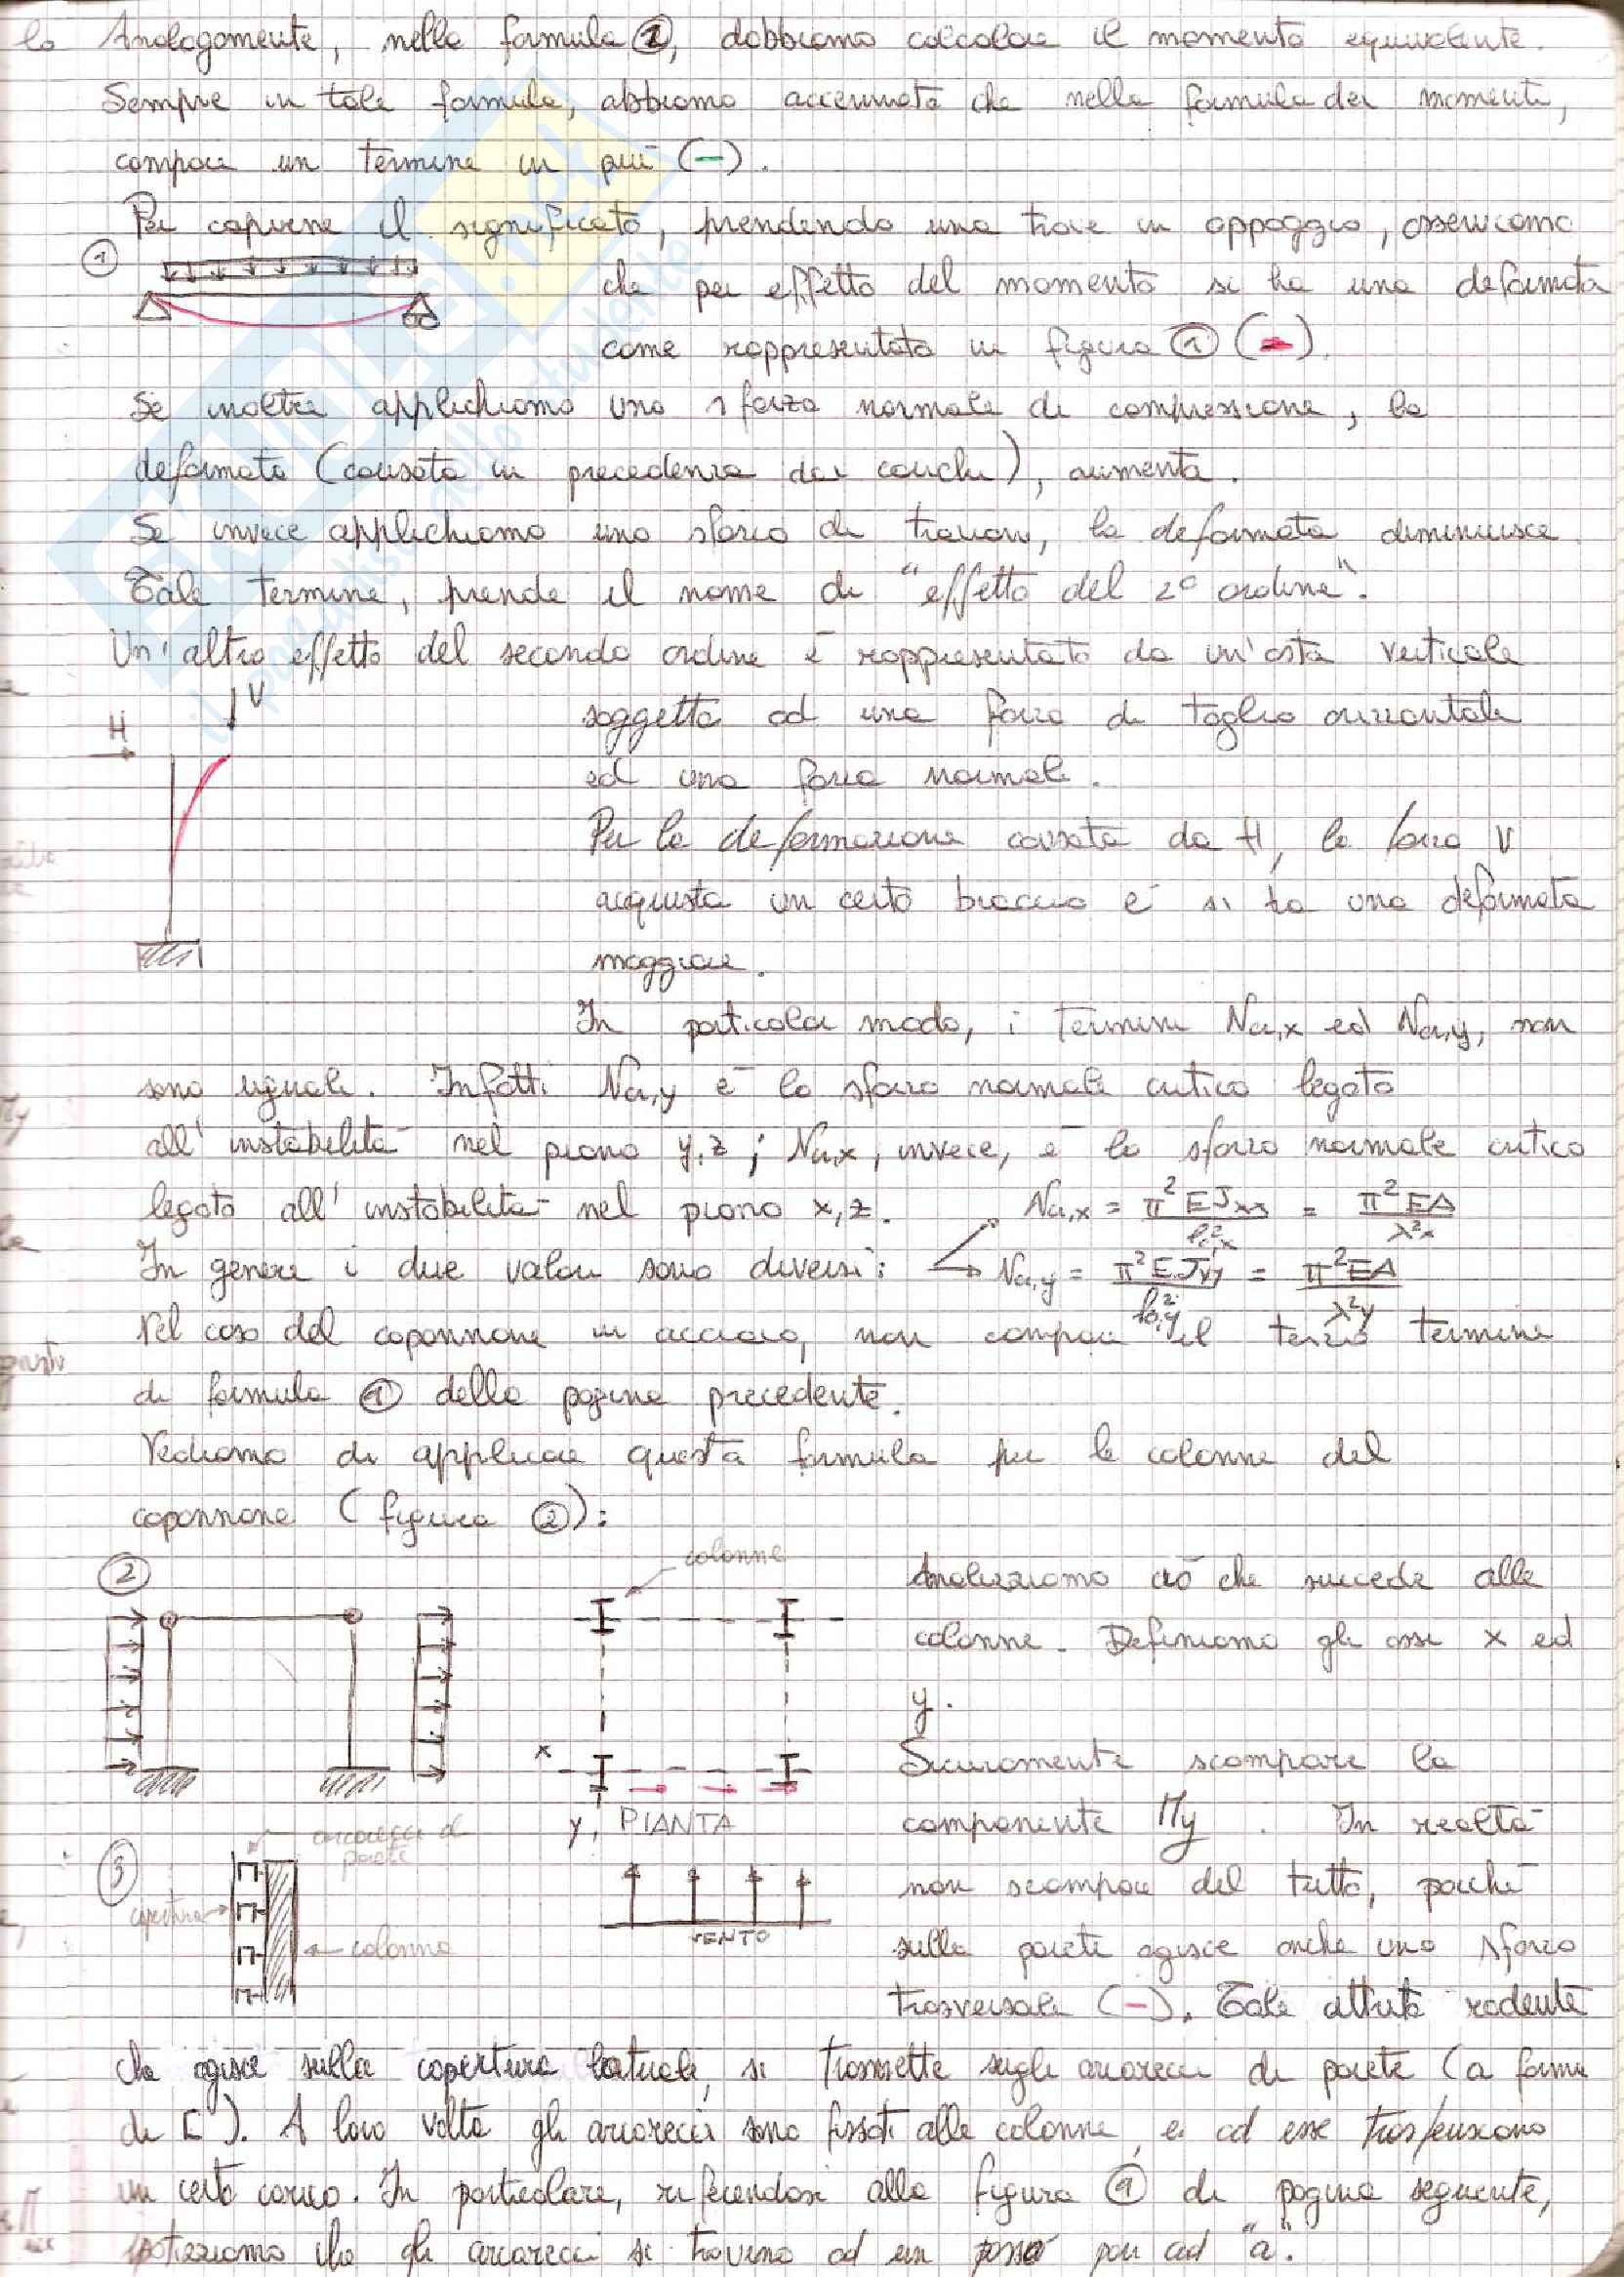 Analogamente, nella formula ②, dobbiamo calcolare il momento equivalente.
Sempre in tale formula, abbiamo accennato che nella formula dei momenti,
compare un termine in più (-).
Per capirne il significato, prendendo una trave in appoggio, osserviamo
①
che per effetto del momento si ha una deformata
come rappresentata in figura ① (-).
Se inoltre applichiamo uno sforzo normale di compressione, la
deformata (causata in precedenza dai carichi), aumenta.
Se invece applichiamo uno sforzo di trazione, la deformata diminuisce
Tale termine, prende il nome di "effetto del 2° ordine".
Un'altro effetto del secondo ordine è rappresentato da un'asta verticale
V
H
soggetta ad una forza di taglio orizzontale
ed una forza normale.
Per la deformazione causata da H, la forza V
acquista un certo braccio e si ha una deformata
maggiore.
In particolar modo, i termini Ncr,x ed Ncr,y, non
sono uguali. Infatti Ncr,y è lo sforzo normale critico legato
all'instabilità nel piano y,z; Ncr,x, invece, è lo sforzo normale critico
legato all'instabilità nel piano x,z. Ncr,x = π² E Jxx / l²o,x = π² EA / λ²x
In genere i due valori sono diversi: Ncr,y = π² E Jyy / l²o,y = π² EA / λ²y
Nel caso del capannone in acciaio, non compare il terzo termine
di formula ① della pagina precedente.
Vediamo di applicare questa formula per le colonne del
capannone (figura ②):
② colonne
Analizziamo ciò che succede alle
colonne. Definiamo gli assi x ed
y.
x
Sicuramente scompare la
y, PIANTA
componente My. In realtà
③ arcarecci di parete
non scompare del tutto, poiché
copertura
VENTO
colonna
sulla parete agisce anche uno sforzo
trasversale (-). Tale attrito radente
che agisce sulla copertura laterale, si trasmette sugli arcarecci di parete (a forma
di [ ). A loro volta gli arcarecci sono fissati alle colonne, e ad esse trasferiscono
un certo carico. In particolare, riferendosi alla figura ① di pagina seguente,
ipotizziamo che gli arcarecci si trovino ad un passo pari ad "a".